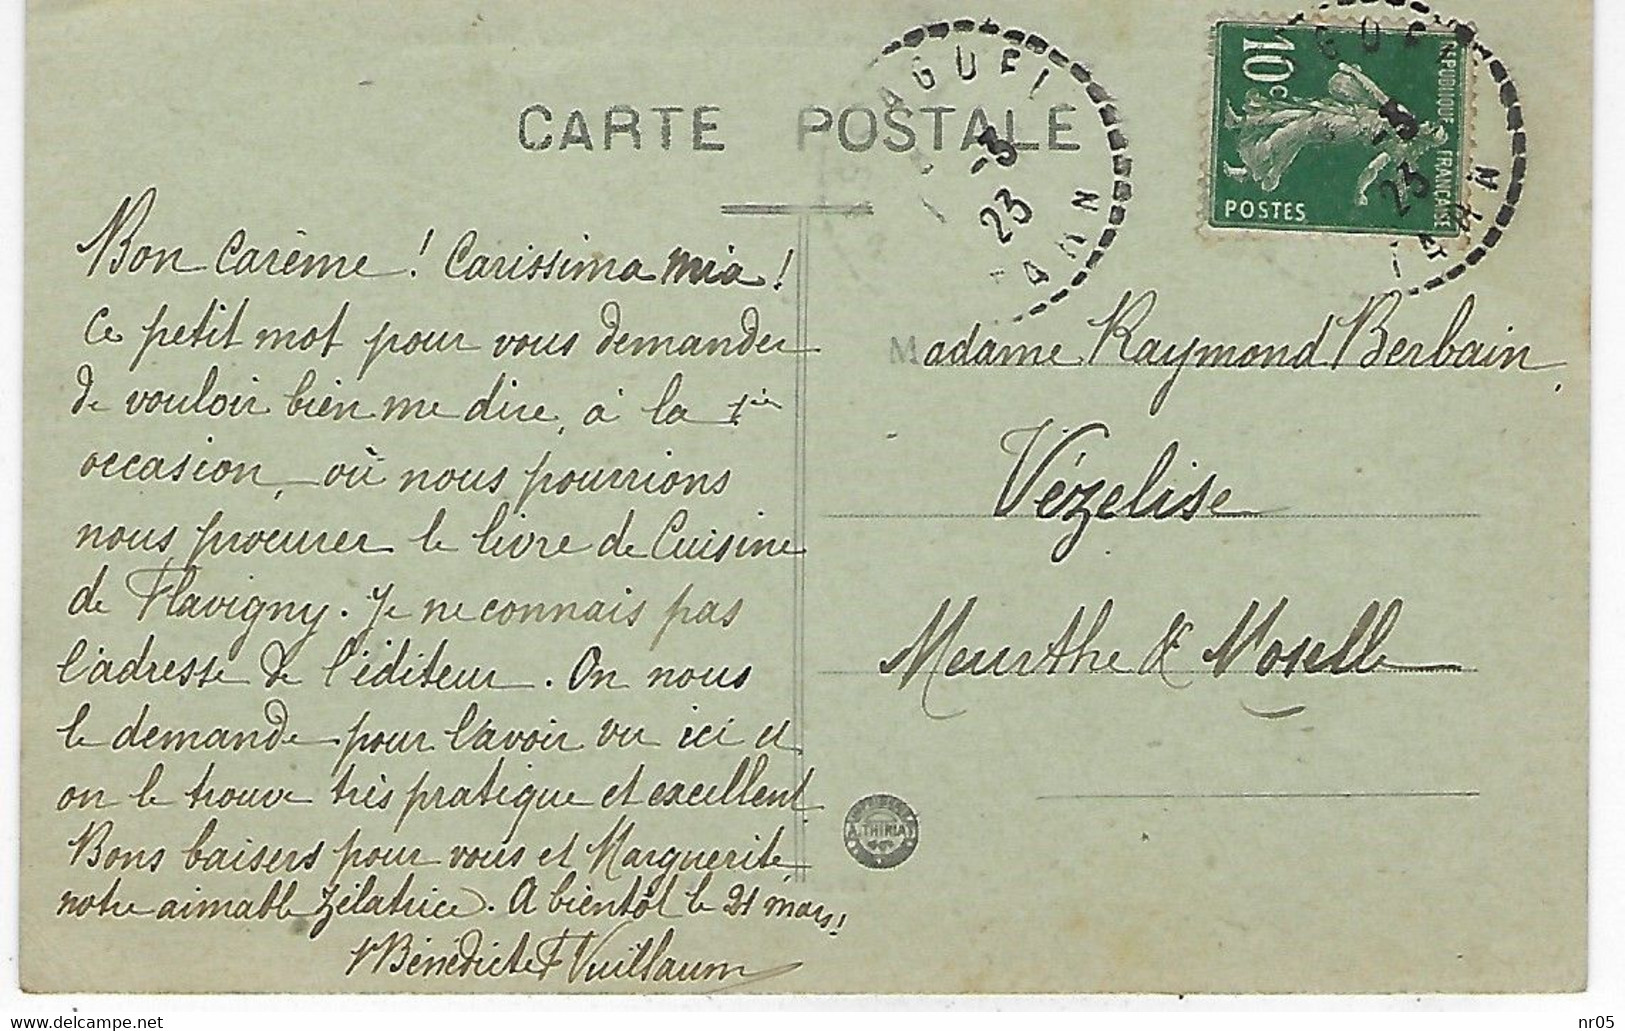 CARTE POSTALE
AGUEL
-3
23
TARN
10c
REPUBLIQUE FRANÇAISE
POSTES
GUE
-3
23
TARN
Bon Carême ! Carissima mia !
Ce petit mot pour vous demander
de vouloir bien me dire, à la 1ère
occasion, où nous pourrions
nous procurer le livre de Cuisine
de Flavigny. Je ne connais pas
l'adresse de l'éditeur. On nous
le demande pour l'avoir vu ici et
on le trouve très pratique et excellent
Bons baisers pour vous et Marguerite,
notre aimable Zélatrice. A bientôt le 21 mars !
Sr Bénédicte Vuillaum
Madame Raymond Berbain,
Vézelise
Meurthe & Moselle
A. THIRIAT
nr05